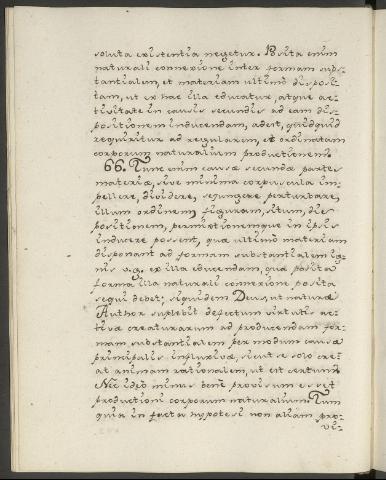 soluta existentia negetur. Posita enim
naturali connexione inter formam subs-
tantialem, et materiam ultimo disposi-
tam, ut ex hac illa educatur, atque ac-
tivitate in causis secundis ad eam dis-
positionem inducendam, adest, quidquid
requiritur ad regularem, et ordinatam
corporum naturalium productionem.
66. Tunc enim causæ secundæ partes
materiæ, sive minima corpuscula im-
pellere, dividere, sejungere perturbare,
illum ordinem figuram, situm, dis-
positionem, permixtionemque in ipsis
inducere possent, quæ ultimo materiam
disponant ad formam substantialem ig-
nis v.g. ex illa educendam, qua posita
forma illa naturali connexione posita
sequi debet; siquidem Deus, ut naturæ
Author suplebit defectum virtutis ac-
tivæ creaturarum ad producendam for-
mam substantialem per modum causæ
principalis influxivæ, sicut se solo cre-
at animam rationalem, ut est certum.
Nec ideo minus bene provisum esset
productioni corporum naturalium. Tum
quia in facta hypotesi non aliam pro-
vi-